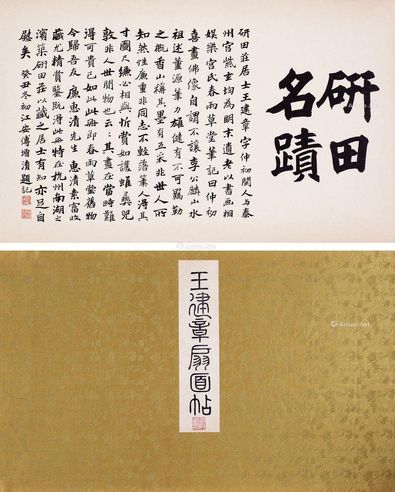 研田
名蹟
研田莊居士王建章字仲初閩人与秦
州宮紫玄均為明末遺老以書画相
娛樂宮氏春雨草堂筆記曰仲初
喜畫佛像自謂不讓李公麟山水
祖述董源筆力雄健有不可羈勒
之香山稱其墨有五采非世人所
知然性廉重非同志不輕落筆人得其
寸圖尺縑必相與賞如彝兕
敦非人世間物也云其畫在當時難
得可貴已如此此冊即春雨草堂舊物
今歸吾友廉惠清先生惠清素富收
藏尤精賞鑒既得此冊特在杭州南湖之
濱築研田莊以藏之居士有知亦足自
慰矣癸丑冬初江安傅增淯題記
王建章扇面帖